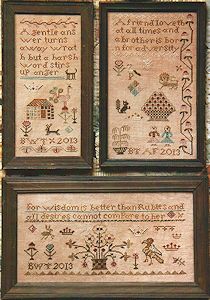 A gentle ans
wer turns
away wrat
h but a harsh
word stirs
up anger
BWTX 2013
A friend loveth
at all times and
a brother is bor
n for adversity
BWT 2013
For wisdom is better than Rubies and
all desires cannot compare to her X
BWT 2013